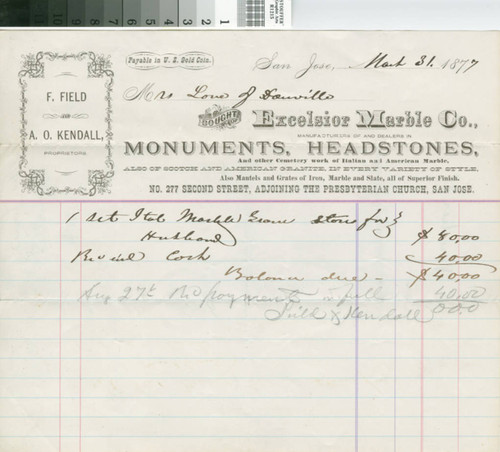 Payable in U. S. Gold Coin.
San Jose, Mar 31. 1877
F. FIELD
AND
A. O. KENDALL,
PROPRIETORS.
Mrs Love of Danville
BOUGHT OF
Excelsior Marble Co.,
MANUFACTURERS OF AND DEALERS IN
MONUMENTS, HEADSTONES,
And other Cemetery work of Italian and American Marble,
ALSO OF SCOTCH AND AMERICAN GRANITE, IN EVERY VARIETY OF STYLE.
Also Mantels and Grates of Iron, Marble and Slate, all of Superior Finish.
NO. 277 SECOND STREET, ADJOINING THE PRESBYTERIAN CHURCH, SAN JOSE.
1 set Ital Marble Grave stone for
Husband $80,00
Cash 40,00
Balance due - $40,00
Aug 27th Rc payment in full 40,00
Field & Kendall 00,0